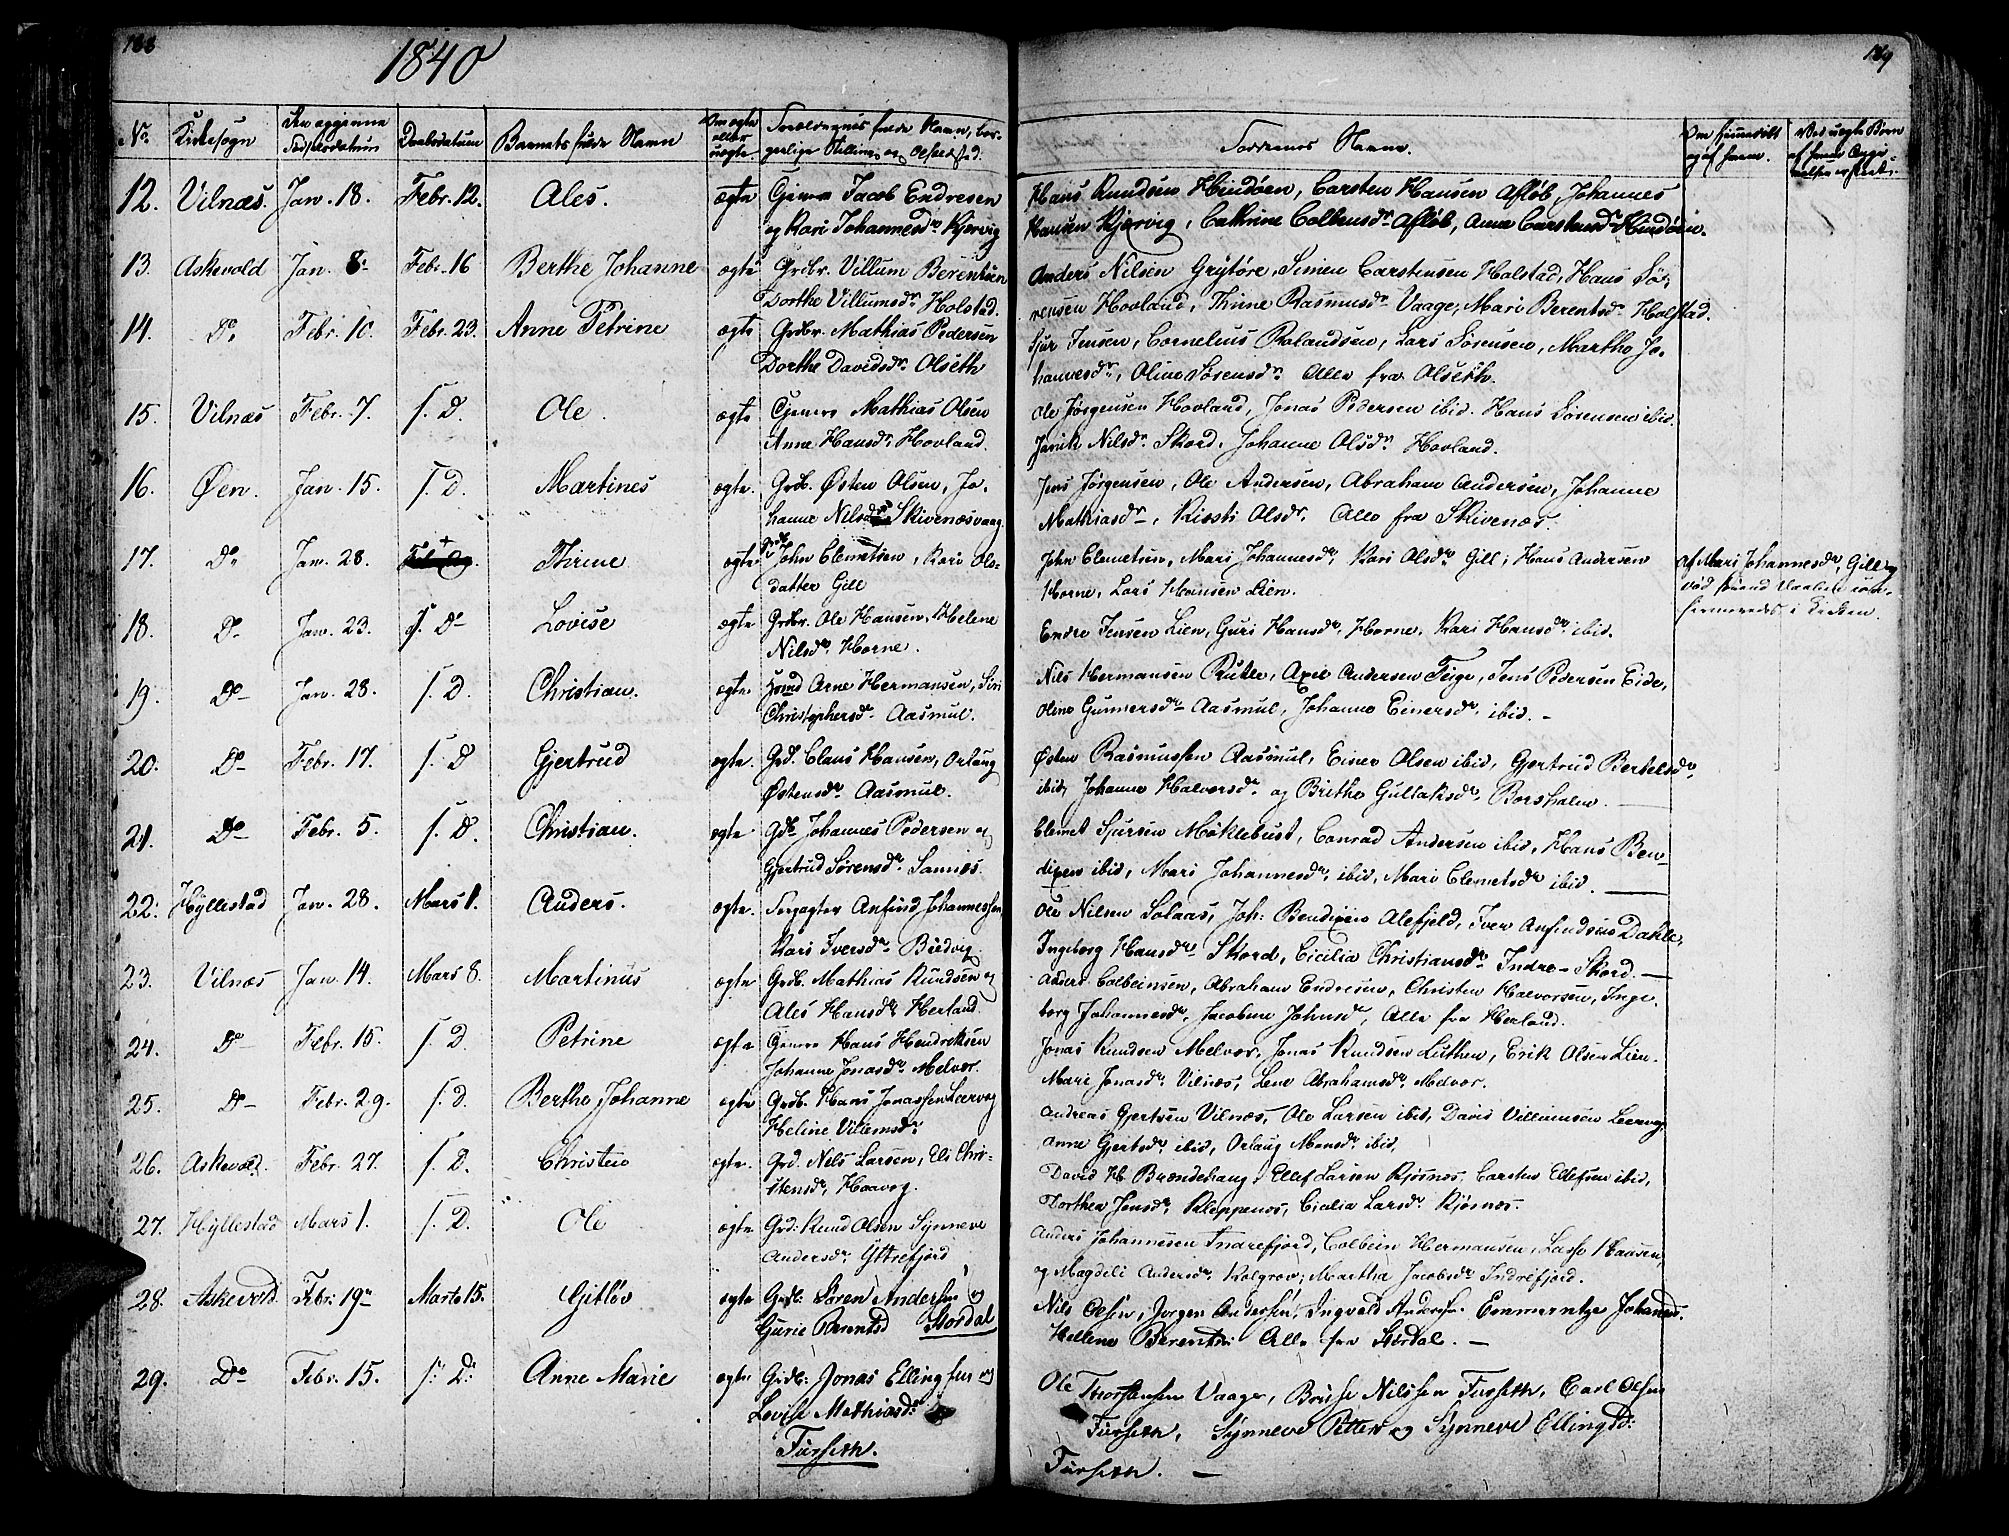 188
1840
189
No. Kirkesogn Den opgivne Fødselsdatum Daabsdatum Barnets fulde Navn Om ægte eller uægte. Forældrenes fulde Navn, borgerlige Stilling og Opholdssted.
Faddernes Navne. Om hjemmedøbt og af hvem. Ved uægte Børn
12. Vilnæs. Jan. 18. Febr. 12. Ales. ægte Jacob Endresen
og Kari Johannesdr. Kjervig
Hans Knudsen Hindøen, Carsten Hansen Afløb, Johannes
Hansen Kjervig, Cathrine Colbensdr. Afløb, Anna Carstensdr. Hindøen.
13. Askevold Jan. 8. Febr. 16 Berthe Johanne ægte Grdbr. Villum Berentsen
Dorthe Villumsdr. Holstad.
Anders Nilsen Grytøre, Simen Carstensen Holstad, Hans Sø-
rensen Hovland, Thrine Rasmusdr. Vaage, Mari Berentsdr. Holstad.
14. Do. Febr. 10. Febr. 23. Anne Petrine ægte Grdbr. Mathias Pedersen
Dorthe Davidsdr. Olseth
Sjur Jensen, Cornelius Rolandsen, Lars Sørensen, Marthe Jo-
hannesdr., Oline Sørensdr. Alle fra Olseth.
15. Vilnæs Febr. 7. s. D. Ole. ægte Mathias Olsen
Anne Hansdr. Hovland.
Ole Jørgensen Hovland, Jonas Pedersen ibid. Hans Sørensen ibid.
Nilsdr. Skord. Johanne Olsdr. Hovland.
16. Øen. Jan. 15. s. D. Martines ægte. Grdb. Østen Olsen, Jo-
hanne Nilsdr. Skivenæsvaag.
Jens Jørgensen, Ole Andersen, Abraham Andersen, Johanne
Mathiasdr., Kirsti Olsdr. Alle fra Skivenæs.
17. Do. Jan. 28. Thrine ægte John Clemetsen, Kari Ols-
datter Gill
John Clemetsen, Mari Johannesdr. Kari Olsdr. Gill; Hans Andersen
Horne, Lars Hansen Lien.
af Mari Johannesdr. Gill og
firmeredes i Kirken.
18. Do Jan. 23. s. Do Lovise ægte Grdbr. Ole Hansen, Helene
Nilsdr. Horne.
Endre Jensen Lien, Guri Hansdr. Horne, Kari Hansdr. ibid.
19. Do Jan. 28. s. D. Christian. ægte Arne Hermansen, Siri
Christophersdr. Aasmul.
Nils Hermansen Rutle, Axel Andersen Teige, Jens Pedersen Eide,
Oline Gunnersdr. Aasmul, Johanne Einersdr. ibid. -
20. Do Febr. 17. s. D Gjertrud ægte. Grd. Claus Hansen, Orlaug
Østensdr. Aasmul.
Østen Rasmussen Aasmul, Einer Olsen ibid, Gjertrud Bertelsdr.
ibid, Johanne Halvorsdr. og Brithe Gullaksdr. Borsholm.
21. Do Febr. 5. s. D. Christian. ægte Gdb Johannes Pedersen og
Gjertrud Sørensdr. Sannæs.
Clemet Sjursen Møklebust, Conrad Andersen ibid, Hans Ben-
dixen ibid, Mari Johannesdr. ibid, Mari Clemetsdr. ibid.
22. Hyllestad Jan. 28. Mars 1. Anders. ægte. Forpagter Anfind Johannessen,
Kari Iversdr. Bødvig
Ole Nilsen Solaas, Joh: Bendixen Alefjeld, Iver Anfindsen Dahle,
Ingeborg Hansdr. Skord, Cicilia Christiansdr. Indre-Skord.
23. Vilnæs Jan. 14. Mars 8. Martinus ægte Grdb. Mathias Knudsen og
Ales Hansdr. Herland.
Anders Colbeinsen, Abraham Endresen, Christen Halvorsen, Inge-
borg Johannesdr. Jacobine Johnsdr. Alle fra Herland.
24. Do Febr. 16. s. D. Petrine ægte Hans Hendriksen
Johanne Jonasdr. Melvær.
Jonas Knudsen Melvær, Jonas Knudsen Luthen, Erik Olsen Lien.
Mari Jonasdr. Vilnæs, Lene Abrahamsdr. Melvær.
25. Do Febr. 29. s. D. Berthe Johanne ægte Grdb. Hans Jonassen Leervog
Heline Villemsdr.
Andreas Gjertsen Vilnæs, Ole Larsen ibid, David Villumsen Leervog
Anne Gjertsdr. ibid, Orlaug Monsdr. ibid,
26. Askevold Febr. 27. s. D. Christen ægte. Grd. Nils Larsen, Els Chris-
stensdr, Haavog.
David H. Brændehaug, Ellef Larsen Kjøsnæs, Carsten Ellefsen ibid,
Dorthea Jensdr. Kleppenæs, Cicilia Larsdr. Kjøsnæs.
27. Hyllestad Mars 1. s. D. Ole ægte Grd: Knud Olsen Synneve
Andersdr. Yttrefjord
Anders Johannesen Indrefjord, Colbein Hermansen, Lasse Hansen,
og Magdeli Andersdr. Kolgrov, Martha Jacobsdr. Indrefjord.
28. Askevold. Febr. 19 Marts 15. Gitløv ægte Grdb: Søren Andersen og
Gurie Berentsd Stordal
Nils Olsen, Jørgen Andersen, Ingvald Andersen. Emmerentze Johannesd.
Hellene Berentsd. Alle fra Stordal. -
29. Do Febr. 15. s: D: Anne Marie ægte Grdb: Jonas Ellingsen og
Lovise Mathiasd:
Furseth.
Ole Thorstensen Vaage, Brise Nilsen Furseth, Carl Olsen
Furseth, Synneve Petters og Synneve Ellingsd:
Furseth. -